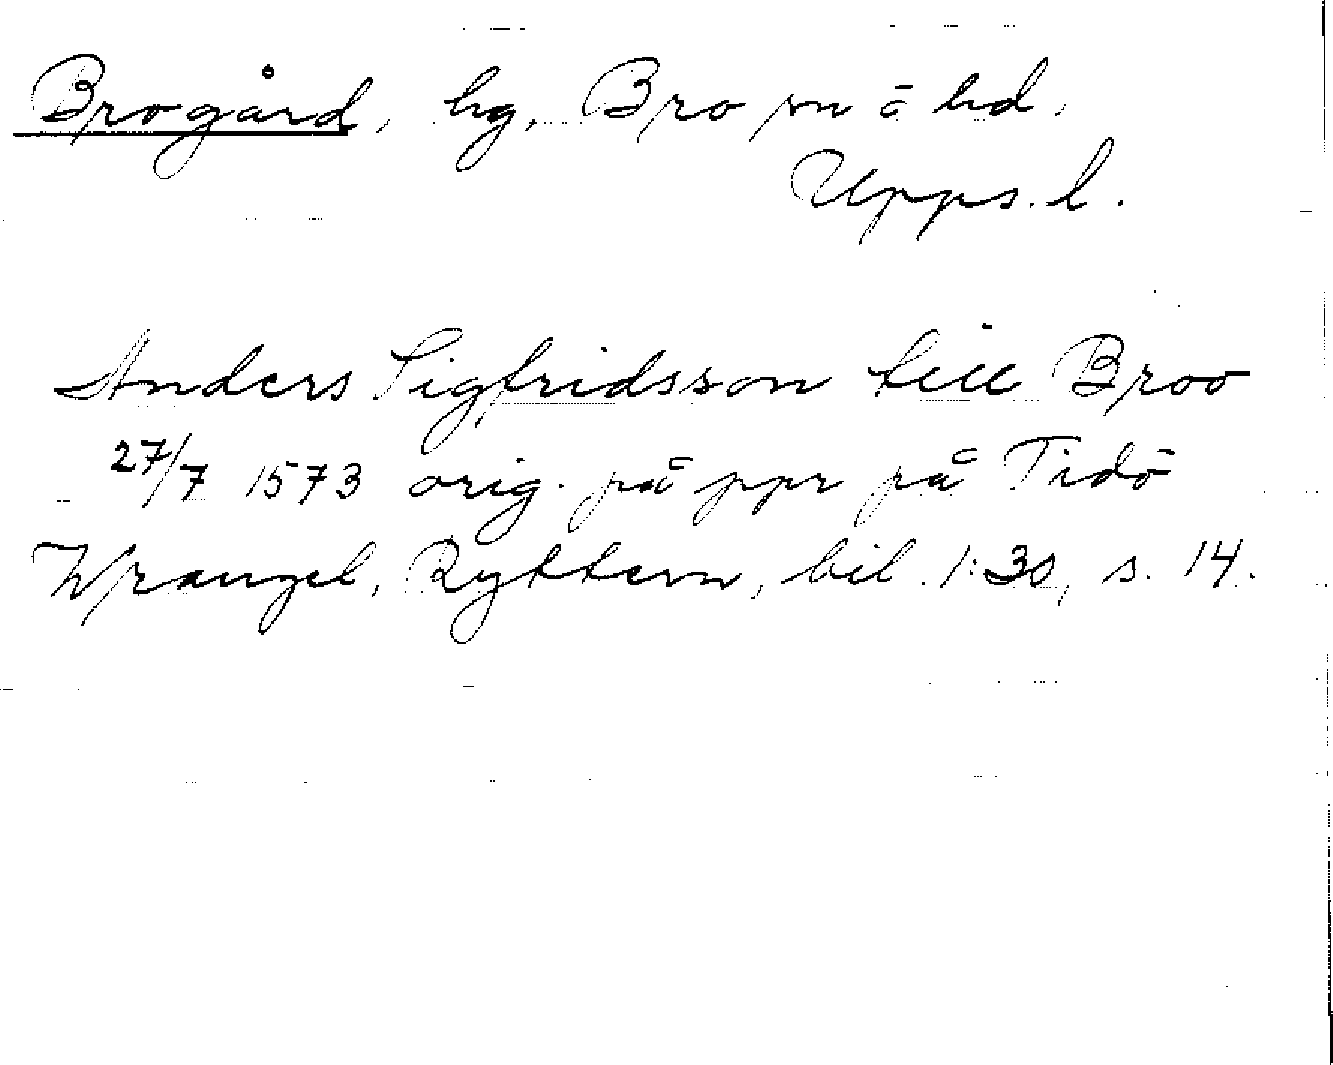 Brogård, hg, Bro sn o hd,
Upps. l.
Anders Sigfridsson till Broo
27/7 1573 orig. på ppr på Tidö
Wrangel, Ryttern, bil. 1:30, s. 14.